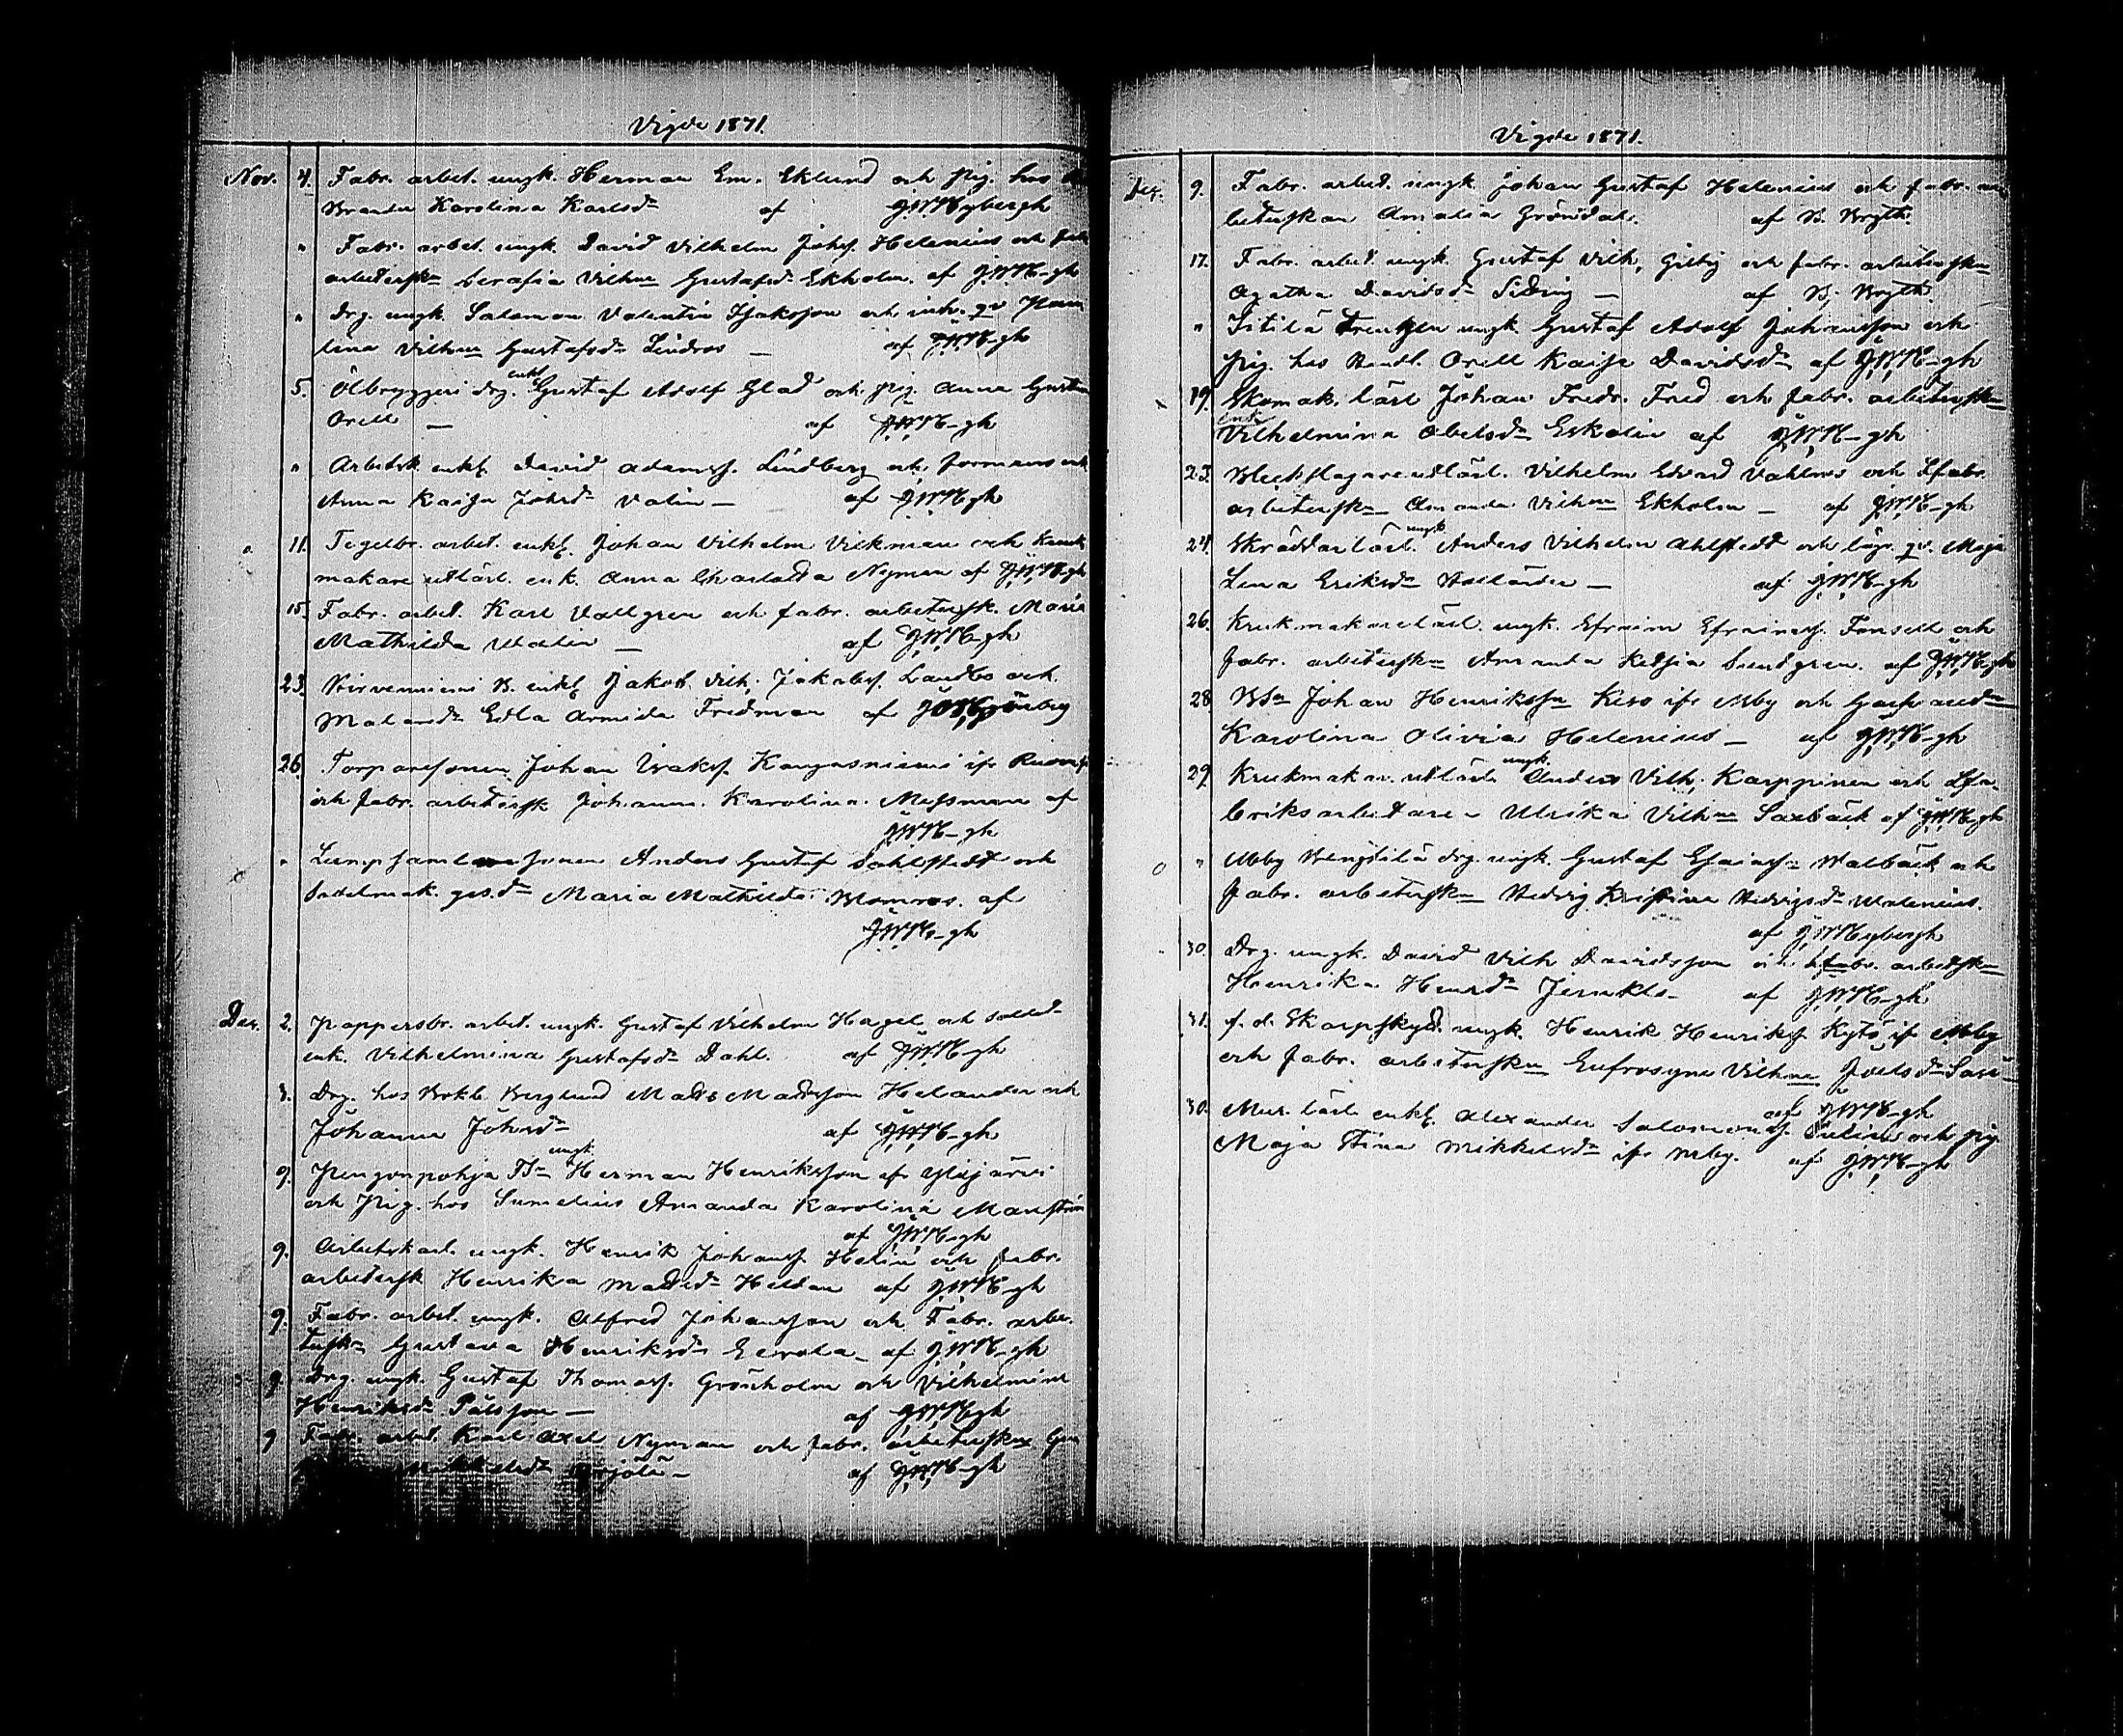 Vigde 1871.
Nov. 4. Fabr. arbet. ungk. Herman Em. Eklund och pig. hos
Brander Karolina Karlsdr af G.W.Hybergh
" Fabr. arbet. ungk. David Vilhelm Johss. Helenius och fab
arbetersk. Serafia Vilhna Gustafsdr Ekholm. af G.W.H-gh
" Drg. ungk. Salomon Valentin Isaksson och inh. qv.
lina Vilhna Gustafsdr Lindros — af G.W.H-gh
5. Ölbryggeri drg. enkl. Gustaf Adolf Glad och pig. Anna Gustava
Orell — af G.W.H-gh
" Arbetsk. enkl. David Adamss. Lindberg och formans enk.
Anna Kaisa Johsdr Valin — af G.W.H-gh
11. Tegelbr. arbet. enkl. Johan Vilhelm Vickman och Kruk
makare utlärl. enk. Anna Charlotta Nyman af G.W.H-gh
15. Fabr. arbet. Karl Vallgren och fabr. arbetersk. Maria
Mathilda Malin — af G.W.H-gh
23. Koirvenniemi B. enkl. Jakob Vilh. Jakobss. Landbo och
Edla Armida Fredman af
26. Torparesonen Johan Isakss. Kangasniemi ifr
och fabr. arbetersk. Johanna Karolina Messman af
G.W.H-gh
" Lumpsamlaresonen Anders Gustaf Dahlstedt och
Sadelmak. ges.dr Maria Mathilda Blomros. af
G.W.H-gh
Dec. 2. Pappersbr. arbet. ungk. Gustaf Vilhelm Hagel och sold.
enk. Vilhelmina Gustafsdr Dahl. af G.W.H-gh
3. Drg. hos Bokb. Berglund Mats Matsson Helander och
Johanna Johsdr af G.W.H-gh
9. Pengonpohja Ts. ungk. Herman Henriksson ifr Yläjärvi
och Pig. hos Sumelius Amanda Karolina Manström
af G.W.H-gh
9. Arbetskarl ungk. Henrik Johanss. Helin och fabr.
arbetersk. Henrika Matsdr Heldan af G.W.H-gh
9. Fabr. arbet. ungk. Alfred Johansson och Fabr. arbe-
tersk. Gustava Henriksdr Eerola af G.W.H-gh
9. Drg. ungk. Gustaf Thomass. Grönholm och Vilhelmina
Henriksdr Pålsson — af G.W.H-gh
9 Fabr. arbet. Karl Axel Nyman och fabr. arbeterskan
af G.W.H-gh
Vigde 1871.
Dec. 9. Fabr. arbet. ungk. Johan Gustaf Helenius och fabr. ar
beterskan Amalia Gröndal. af B. Bryth.
17. Fabr. arbet. ungk. Gustaf Vilh. Gilby och fabr. arbeterskn
Agatha Davidsdr Liding — af B. Bryth.
" Isitilä Trenglen ungk. Gustaf Adolf Johansson och
pig. hos Handl. Orell Kaisa Davidsdr af G.W.H-gh
19. Skomak. lärl. Johan Fredr. Fred och fabr. arbeterskn
enk. Vilhelmina Abelsdr Eskolin af G.W.H-gh
23. Bleckslagare utlärl. Vilhelm Edvard Vahlroos och Lfabr.
arbeterskn Amanda Vilhna Ekholm — af G.W.H-gh
24. Skräddarlärl. ungk. Anders Vilhelm Ahlstedt och lösa qv. Maja
Lena Eriksdr Hollander — af G.W.H-gh
26. Krukmakarelärl. ungk. Efraim Efraimss. Fonsell och
fabr. arbeterskn Amanda Kedjia Sundgren. af G.W.H-gh
28. Bs. Johan Henriksson Keso ifr Mby och
Karolina Olivia Helenius — af G.W.H-gh
29. Krukmakar. utlärl. ungk. Anders Vilh. Karppinen och Lfa-
briksarbetare Ulrika Vilhna Saxbäck af G.W.H-gh
" Mby Bengtilä drg. ungk. Gustaf Esaiass. Malbäck och
fabr. arbeterskn Hedvig Kristina Hedvigsdr Malenius.
af G.W.Hybergh
30. Drg. ungk. David Vilh. Davidsson och Lfabr. arbetskn
Henrika Henrsdr Jernkls. af G.W.H-gh
31. f. d. Skarpskytt. ungk. Henrik Henrikss. Kytö ifr Mby
och fabr. arbeterskn Eufrosyne Vilhna Joelsdr
af G.W.H-gh
30. Mur. lärl. enkl. Alexander Salomons. och pig.
Maja Stina Mikkelsdr ifr Mby. af G.W.H-gh